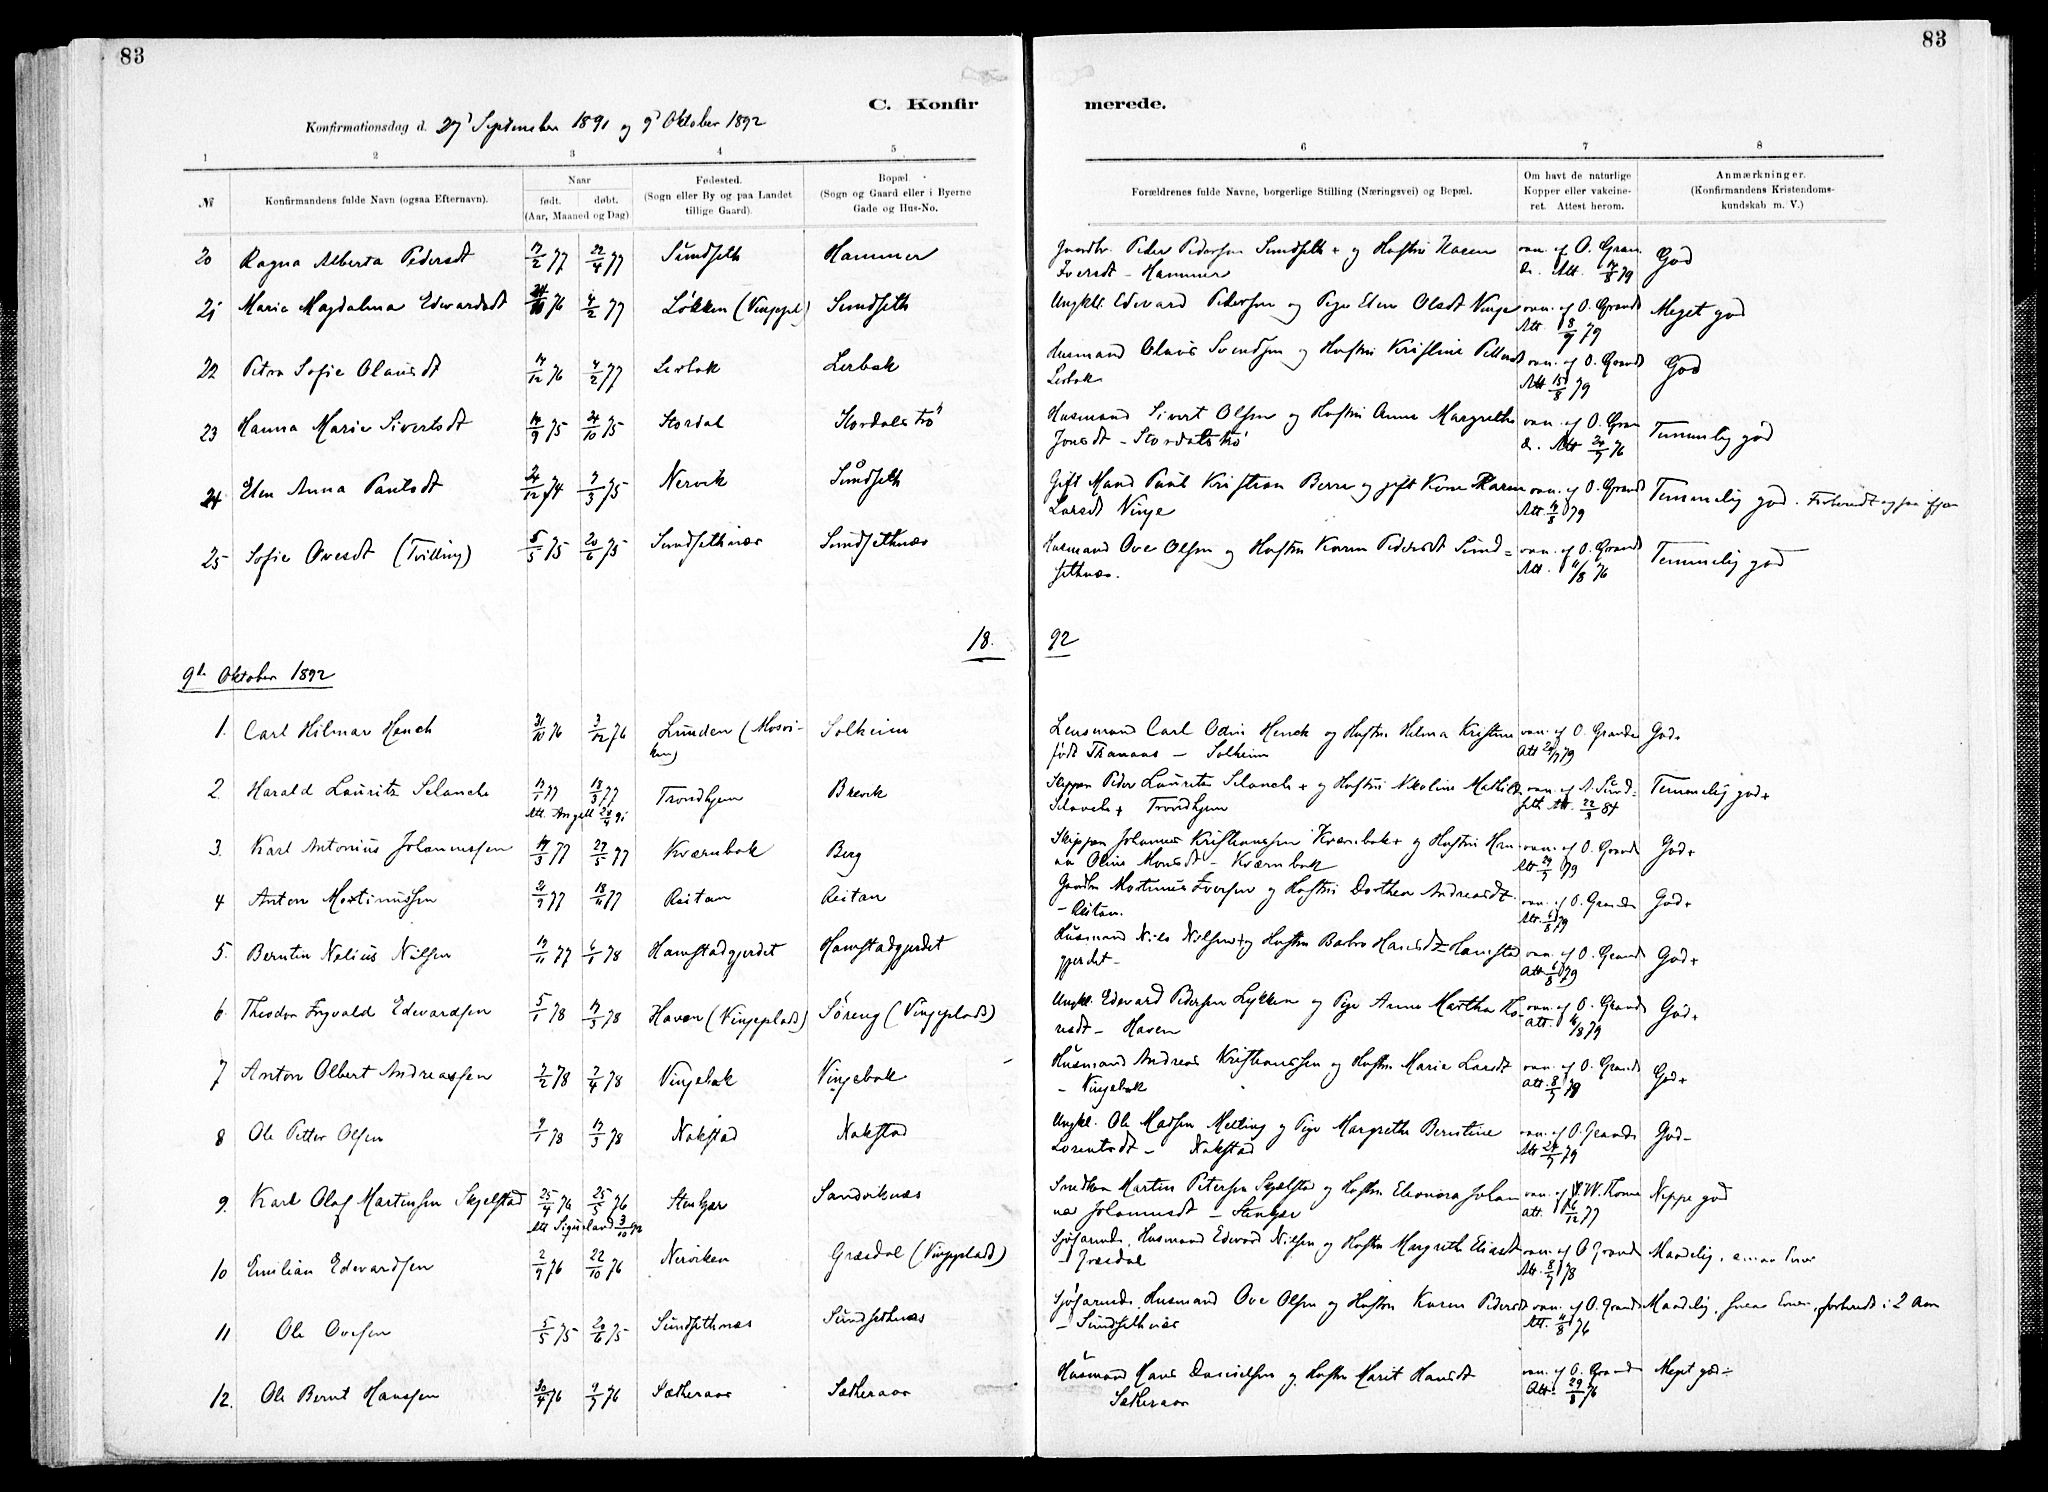 83
83
C. Konfirmerede.
Konfirmationsdag d. 27' September 1891 og 9' Oktober 1892
1 2 3 4 5 6 7 8
№ Konfirmandens fulde Navn (ogsaa Efternavn). Naar født. døbt. (Aar, Maaned og Dag) Fødested. (Sogn eller By og paa Landet tillige Gaard). Bopæl. (Sogn og Gaard eller i Byerne Gade og Hus-No. Forældrenes fulde Navne, borgerlige Stilling (Næringsvei) og Bopæl. Om havt de naturlige Kopper eller vakcineret. Attest herom. Anmærkninger. (Konfirmandens Kristendomskundskab m. V.)
20 Ragna Alberta Pedersdt 77 22/4 77 Sundseth Hammer Peder Pedersen Sundseth + og Hustru Iversdt - Hammer vac. af O. Grande. Att. 79 God
21 Marie Magdalena Edvardsdt 76 4/2 77 Løkken (Vingepl.) Sundseth Ungkl. Edevard Pedersen og Pige Elen Olsdt Vinje vac. af O. Grande Att. 79 Meget god
22 Petra Sofie Olausdt 76 4/2 77 Lerbak Lerbak Husmand Olaus Svendsen og Hustru Kristine Lerbak vac. af O. Grande Att 15/8 79 God
23 Hanna Marie Sivertsdt 75 24/10 75 Stordal Stordalstrø Husmand Sivert Olsen og Hustru Anna Margrethe Jonsdt - Stordalstrø vac. af O. Grande. Att 76 Temmelig god
24 Elen Anna Paulsdt 24/12 74 7/3 75 Nervik Sundseth Gift Mand Paul Kristian Berre og gift Kone Karen Larsdt Vinje vac. af O. Grande Att. 79 Temmelig god.
25 Sofie Ovesdt (Tvilling) 5/5 75 20/6 75 Sundsethnæs Sundsethnæs Husmand Ove Olsen og Hustru Karen Pedersdt Sundsethnæs. vac. af O. Grande Att. 11/8 76 Temmelig god
18. 92
9d. Oktober 1892
1. Carl Hilmar Henck 31/10 76 3/12 76 Lunden (Mosviken) Solheim Lensmand Carl Odin Henck og Hustru Helma Kristine født - Solheim vac. af O. Grande Att 79 God.
2. Harald Lauritz Selanck 77 18/3 77 Trondhjem Brevik Skipper Peder Lauritz Selanck + og Hustru Nikoline Mathilde Selanck + Trondhjem vac. af A. Sundseth Att. 22/3 84 Temmelig god +
Att. Angell
3. Karl Antonius Johannessen 77 27/5 77 Kværnbak Berg Skipper Johannes Kristianssen Kværnbak + og Hustru Oline - Kværnbak vac. af O. Grande Att. 79 God +
4 Anton Mortinussen 77 18/11 77 Reitan Reitan Mortinus Iversen og Hustru Dorthea Andreasdt - Reitan. vac. af O. Grande Att. 79 God +
5. Berntin Nelius Nilsen 77 6/1 78 Hamstadgjerdet Hamstadgjerdet Husmand Nils Nilsen + og Hustru Barbro Hansdt - Hamstadgjerdet - vac. af O. Grande Att. 79 God +
6. Theodor Ingvald Edevardsen 5/1 78 78 Haven (Vingeplads) Søreng (Vingeplads) Ungkl. Edevard Pedersen Lykken og Pige Anne Martha - Haven vac. af O. Grande att. 79 God +
7 Anton Olbert Andreassen 7/2 78 7/4 78 Vingebak Vingebak Husmand Andreas Kristianssen og Hustru Marie Larsdt - Vingebak vac. af O. Grande Att. 79 God +
8 Ole Petter Olsen 78 78 Nakstad Nakstad Ungkl. Ole Madsen Melting og Pige Margrethe Berntine Lorentsdt - Nakstad vac. af O. Grande Att. 79 God -
9. Karl Olaf Martinsen Skjelstad 25/4 76 25/5 76 Stenkjær Sandviknæs Martin Petersen Skjelstad og Hustru Eleonora Johanna Johannesdt - Stenkjær vac. af W. att. 77 Neppe god
10 Emilian Edevardsen 2/9 76 22/10 76 Nerviken Græsdal (Vingeplads) Sjøfarende, Husmand Edevard Nilsen og Hustru Margrethe Eliasdt - Græsdal vac. af O. Grande Att. 78 Maadelig,
11 Ole Ovesen 5/5 75 20/6 75 Sundsethnæs Sundsethnæs Sjøfarende, Husmand Ove Olsen og Hustru Karen Pedersdt - Sundsethnæs vac. af O. Grande Att. 11/8 76 Maadelig, forberedt i 2 Aar
12. Ole Bernt Hanssen 30/4 76 76 Sætheraas Sætheraas Husmand Hans Danielsen og Hustru Marit Hansdt Sætheraas vac. af O. Grande Att. 29/8 76 Meget god -